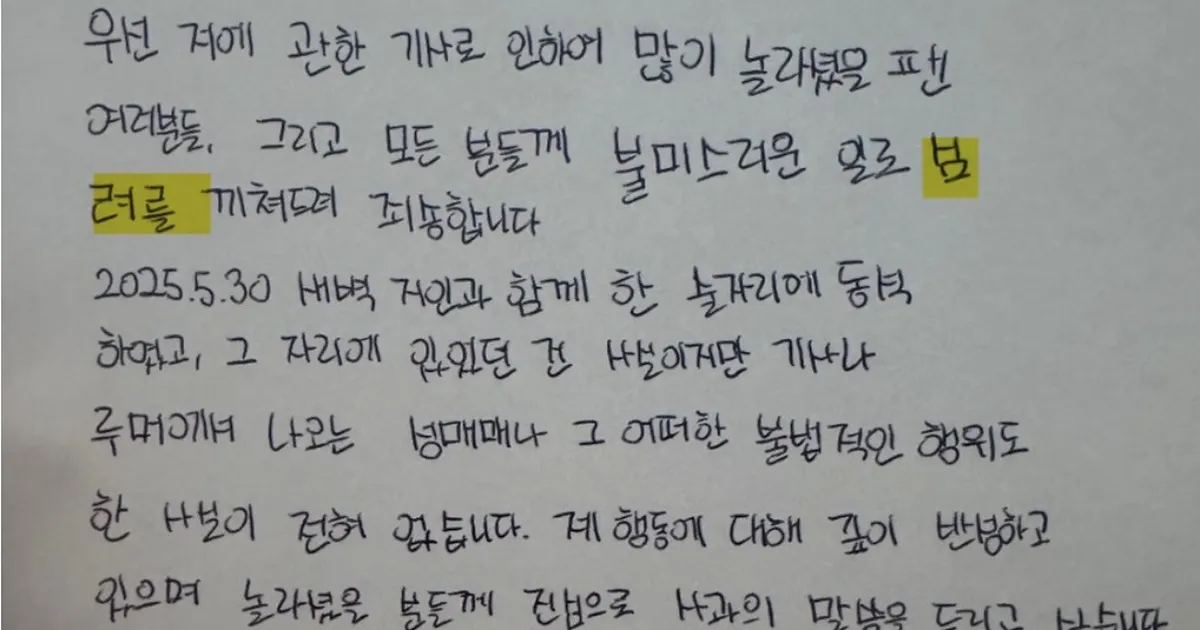 우선 저에 관한 기사로 인하여 많이 놀라셨을 팬
여러분들, 그리고 모든 분들께 불미스러운 일로 범
려를 끼쳐드려 죄송합니다
2025.5.30 새벽 지인과 함께 한 술자리에 동석
하였고, 그 자리에 있었던 건 사실이지만 기사나
루머에서 나오는 성매매나 그 어떠한 불법적인 행위도
한 사실이 전혀 없습니다. 제 행동에 대해 깊이 반성하고
있으며 놀라셨을 분들께 진심으로 사과의 말씀을 드리고 싶습니다